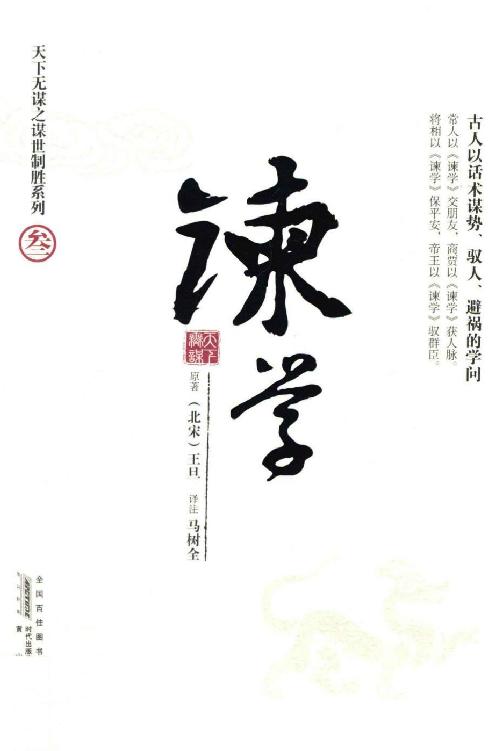 古人以话术谋势、驭人、避祸的学问
常人以《谏学》交朋友，商贾以《谏学》获人脉。
将相以《谏学》保平安，帝王以《谏学》驭群臣。
谏学
天下
原著（北宋）王旦 译注 马树全
天下无谋之谋世制胜系列
叁
全国百佳图书
时代出版
黄山